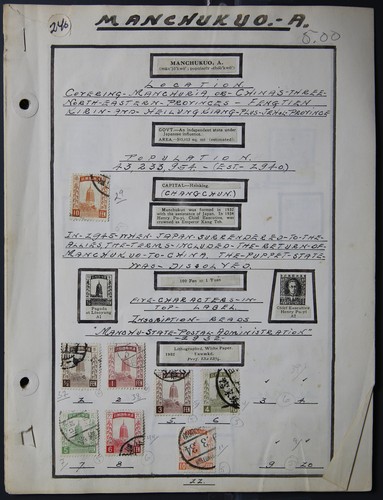 246
MANCHUKUO.-A.
5.00
MANCHUKUO, A.
LOCATION
COVERING-MANCHURIA OR CHINA'S-THREE
NORTH-EASTERN-PROVINCES - FENGTIEN
KIRIN-AND HEILUNGKIANG-PLUS-JEHOL PROVINCE
GOVT.—An independent state under
Japanese influence.
POPULATION
43,233,954 - (EST-1940)
CAPITAL—Hsinking.
(CHANGCHUN.)
Manchukuo was formed in 1932
with the assistance of Japan. In 1934
Henry Pu-yi, Chief Executive was
crowned as Emperor Kang Teh.
IN-1945-WHEN JAPAN-SURRENDERED-TO-THE
ALLIES, THE-TERMS-INCLUDED-THE-RETURN-OF
MANCHUKUO-TO-CHINA. THE-PUPPET-STATE
WAS-DISSOLVED.
100 Fen = 1 Yuan
FIVE-CHARACTERS-IN
TOP - LABEL
INSCRIPTION - READS
Pagoda
at Liaoyang
Chief Executive
Henry Pu-yi
"MANCHU-STATE-POSTAL-ADMINISTRATION"
-1932-
Lithographed, White Paper
1932
Unwmkd.
2
3
5
6
7
8
9
10
11